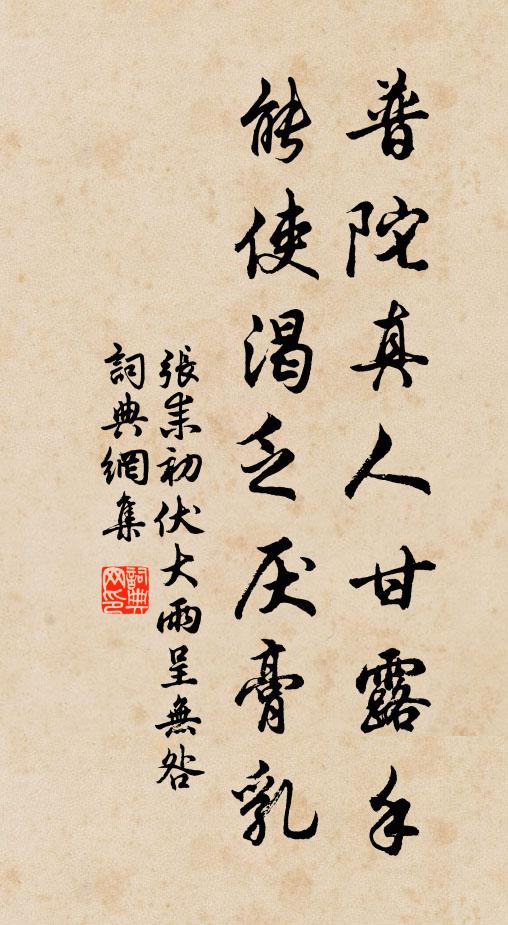 普陀真人甘露手
能使渴乏厌膏乳
張耒初伏大雨呈無咎
詞典網集
詞典网印